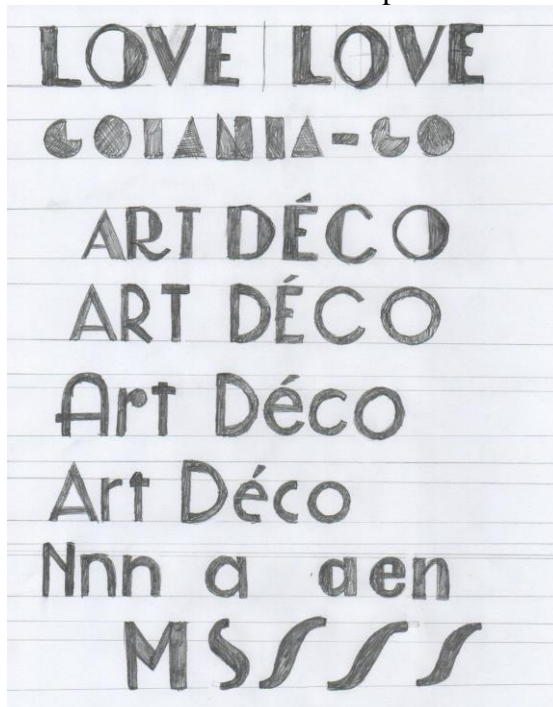 LOVE LOVE
GOIANIA-GO
ART DÉCO
ART DÉCO
Art Déco
Art Déco
Nnn a aen
MSSSS